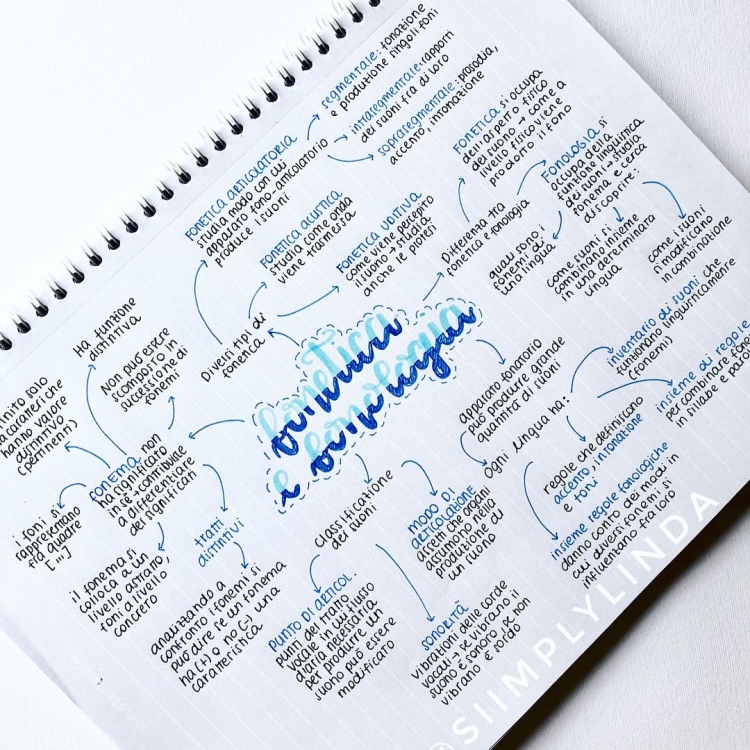 fonetica
e fonologia
Diversi tipi di
fonetica
FONETICA ARTICOLATORIA
studia modo con cui
apparato fono-articolatorio
produce i suoni
segmentale: fonazione
e produzione singoli foni
intrasegmentale: rapporti
dei suoni fra di loro
soprasegmentale: prosodia,
accento, intonazione
FONETICA ACUSTICA
studia come onda
viene trasmessa
FONETICA UDITIVA
come viene percepito
il suono → studia
anche le protesi
Differenza tra
fonetica e fonologia
FONETICA si occupa
dell'aspetto fisico
del suono → come a
livello fisico viene
prodotto il fono
FONOLOGIA si
occupa della
funzione linguistica
dei suoni → studia
fonema e cerca
di scoprire:
quali sono i
fonemi di
una lingua
come suoni si
combinano insieme
in una determinata
lingua
come i suoni
si modificano
in combinazione
apparato fonatorio
può produrre grande
quantità di suoni
ogni lingua ha:
inventario di suoni che
funzionano linguisticamente
(fonemi)
insieme di regole
per combinare
in sillabe e
regole che definiscono
accento, intonazione
e toni
insieme regole fonologiche
danno conto dei modi in
cui diversi fonemi si
influenzano fra loro
classificazione
dei suoni
MODO DI
ARTICOLAZIONE
assetti che organi
assumono nella
produzione di
un suono
PUNTO DI ARTICOL.
punti del tratto
vocale in cui flusso
d'aria necessaria
per produrre un
suono può essere
modificato
SONORITÀ
vibrazioni delle corde
vocali → se vibrano il
suono è sonoro, se non
vibrano è sordo
FONEMA non
ha significato
in sé → contribuisce
a differenziare
dei significati
Ha funzione
distintiva
Non può essere
scomposto in
successione di
fonemi
solo
caratteri che
hanno valore
distintivo
(pertinenti)
i foni si
rappresentano
tra quadre
[...]
il fonema si
colloca a un
livello astratto,
foni a livello
concreto
tratti
distintivi
analizzando a
confronto i fonemi si
può dire se un fonema
ha (+) o no (-) una
caratteristica
@SIIMPLYLINDA